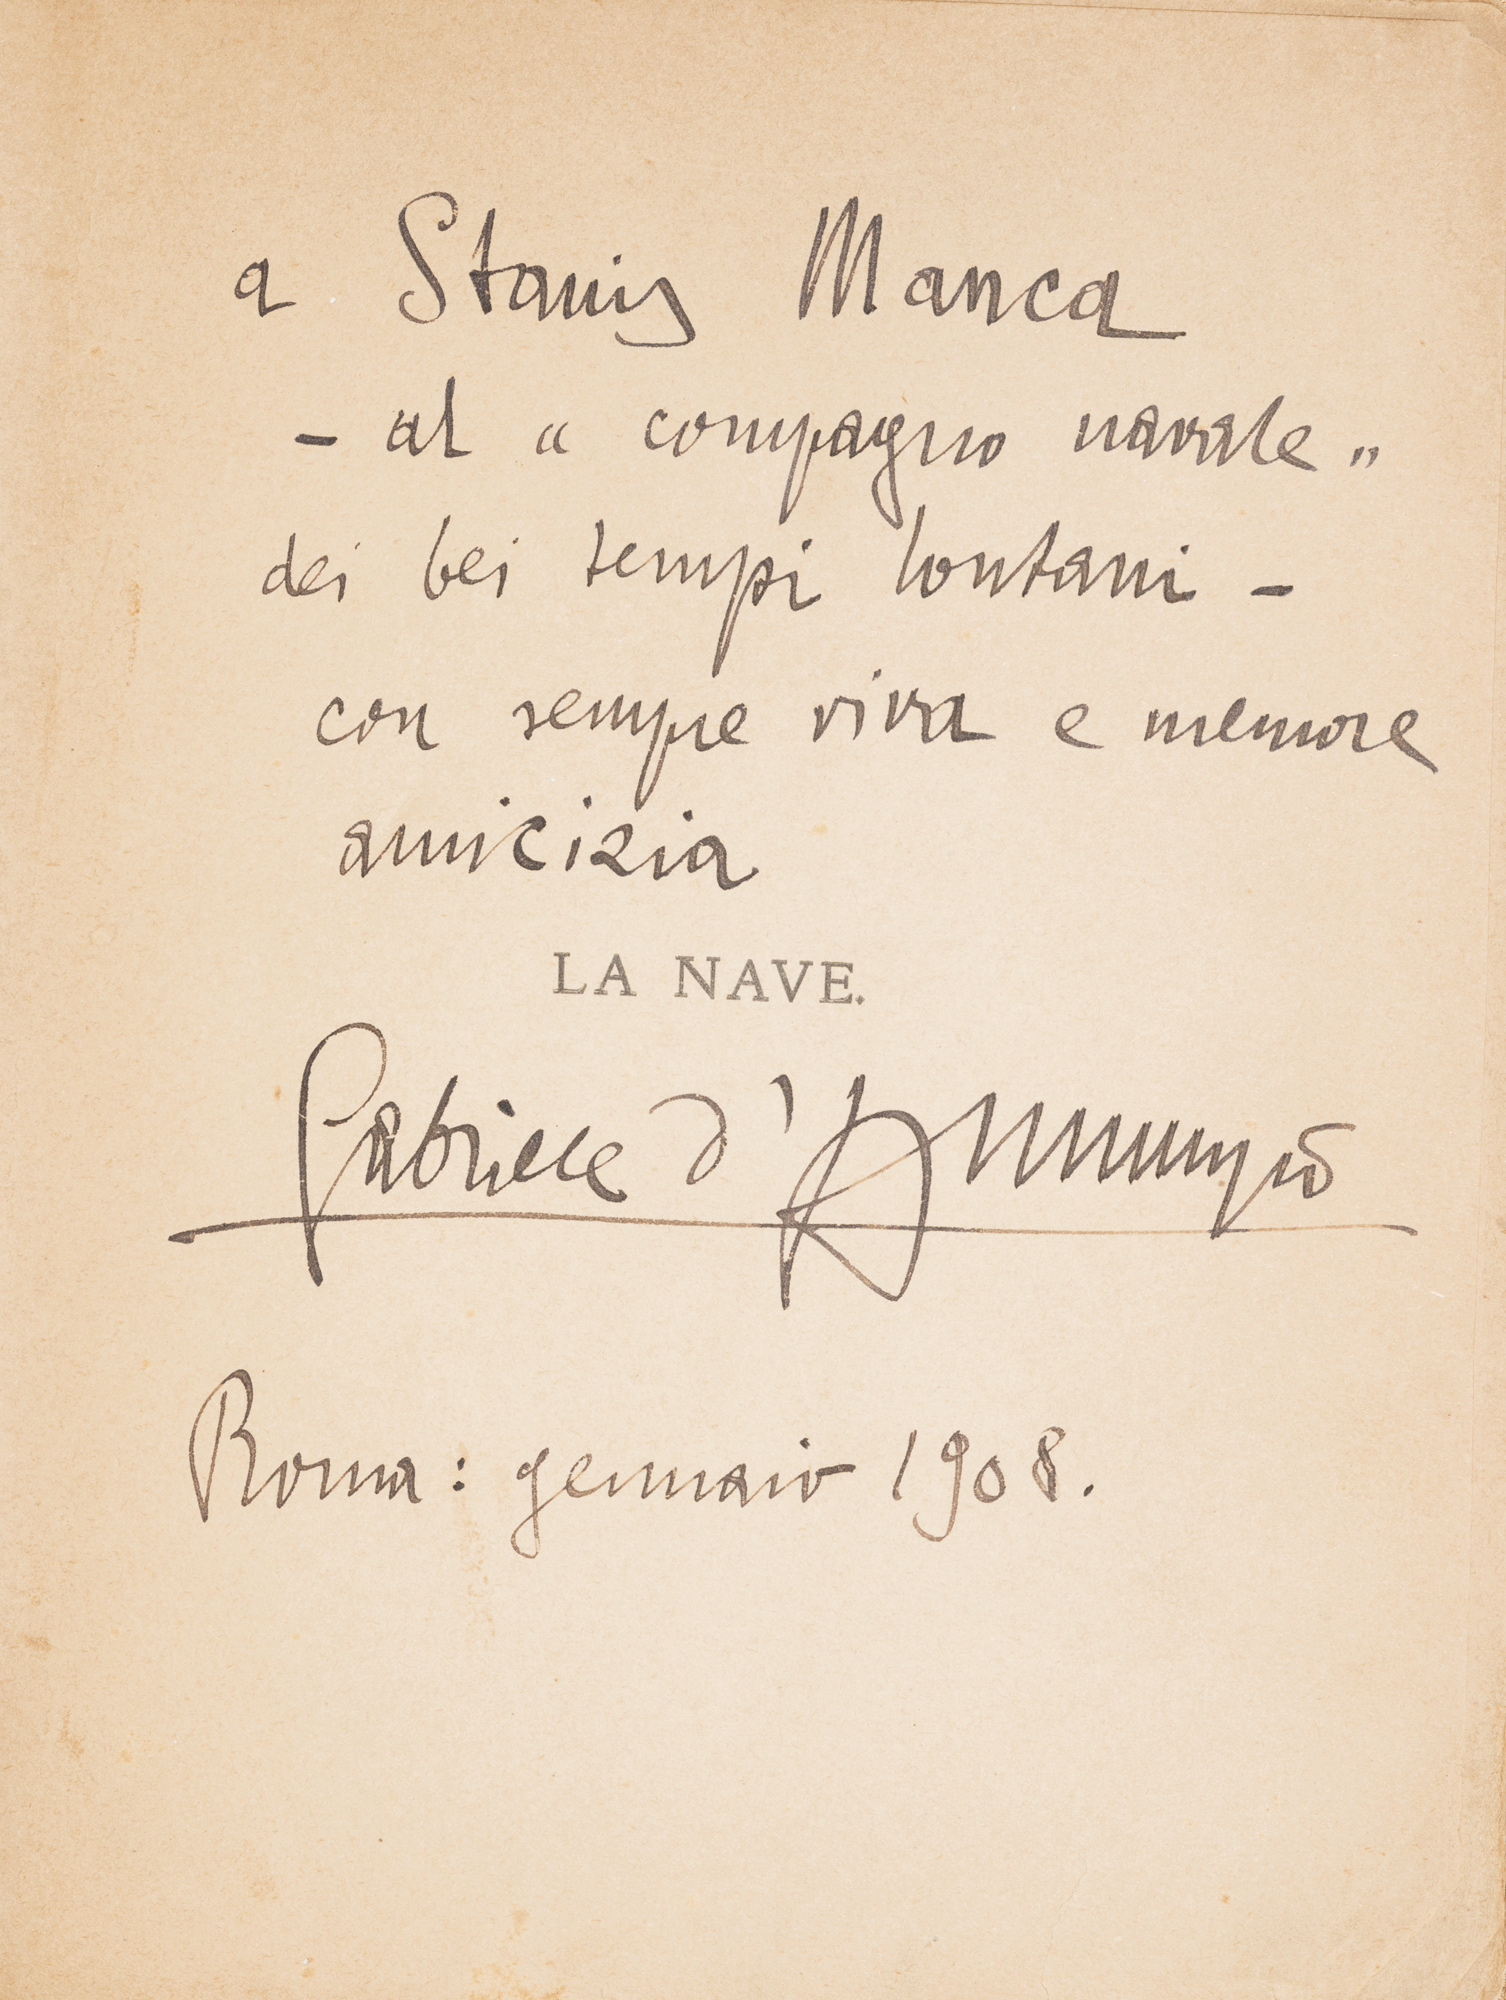 a Stanis Manca
- al " compagno navale "
dei bei tempi lontani -
con sempre viva e memore
amicizia
LA NAVE.
Gabriele d'Annunzio
Roma: gennaio 1908.